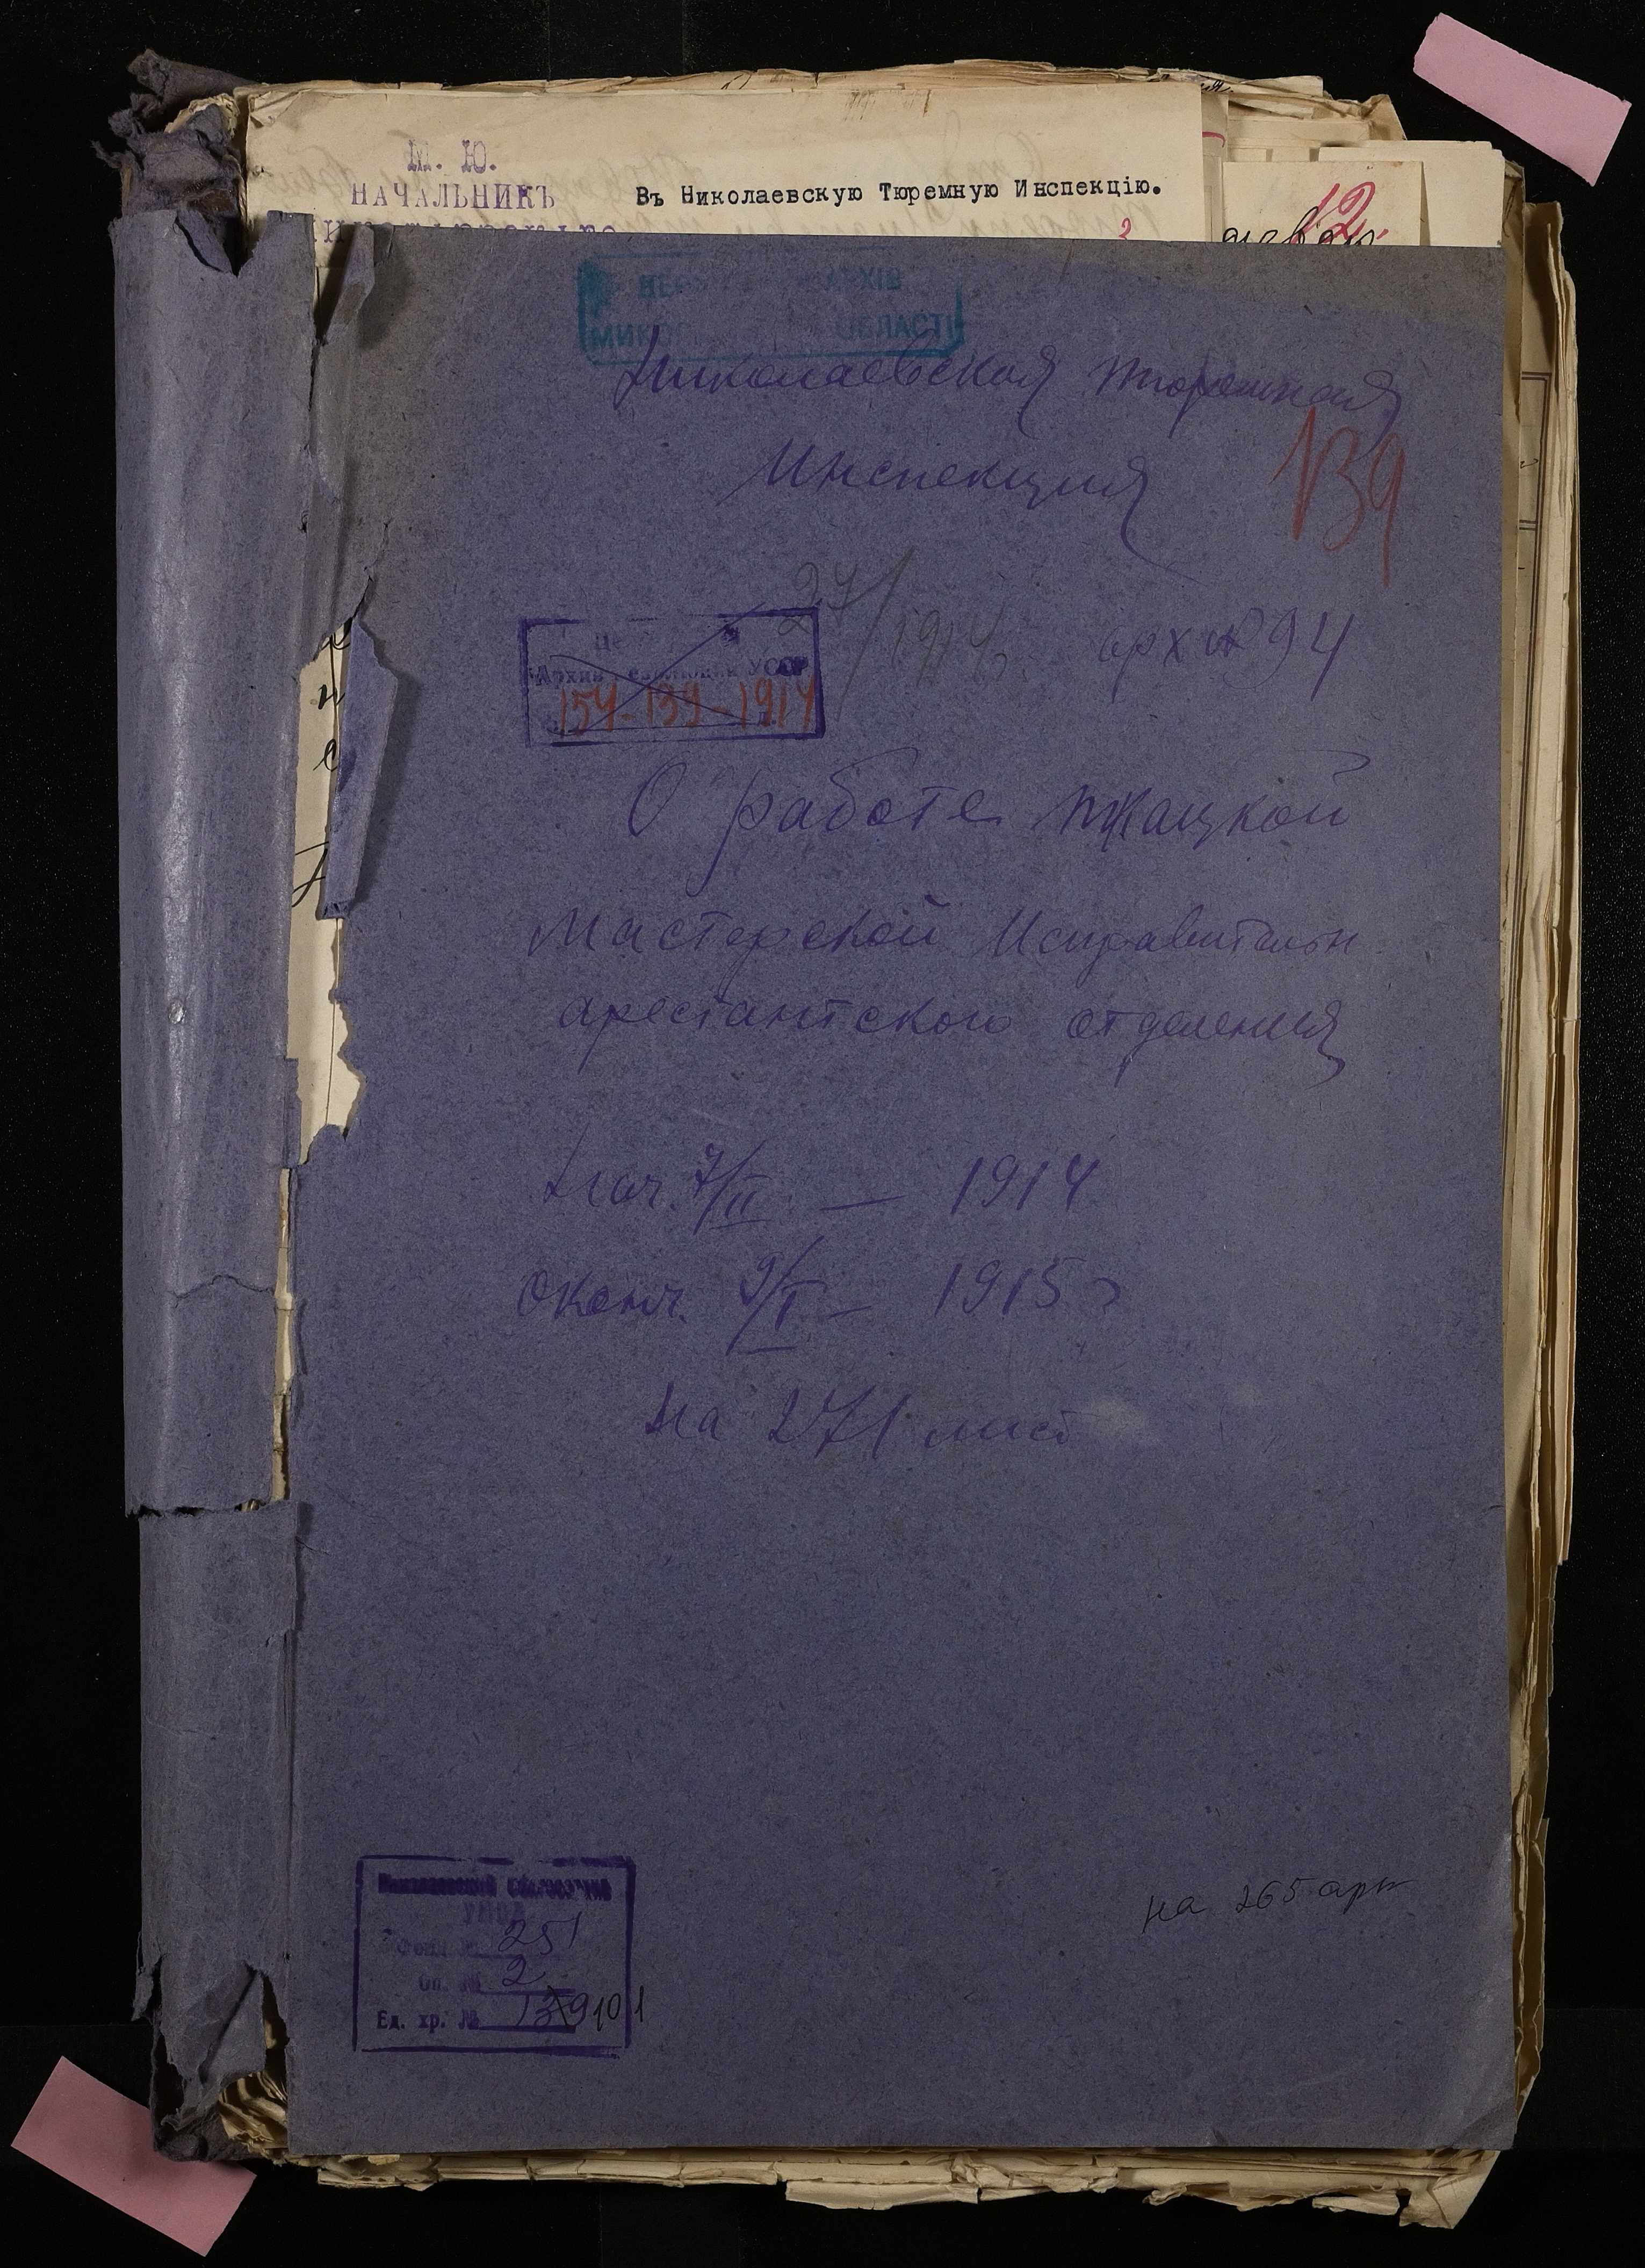 М. Ю.
НАЧАЛЬНИКЪ
Въ Николаевскую Тюремную Инспекцію.
3
12.
АРХІВ
ОБЛАСТІ
Николаевская тюремная
Инспекция
139
27/1914
арх № 94
Архив Революции УССР
154-139-1914
О работе ткацкой
мастерской Исправительн
арестантского отделения
Нач. 7/II — 1914
Оконч. 9/I — 1915 г
на 271 лист
на 265 арк
Николаевский Облгосархив
УМВД
Фонд № 251
Оп. № 2
Ед. хр. № 139 101